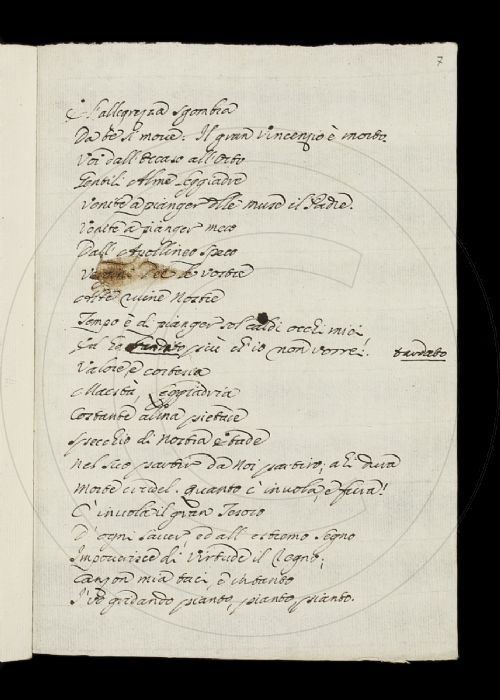 7
E l'allegrezza sgombra
Da te si more. Il gran Vincenzo è morto.
Voi dall'Occaso all'Orto
Gentili Alme leggiadre
Venite a pianger delle muse il Padre.
Venite a pianger meco
Dall' Apollineo Speco
Vostre
Nostre
Tempo è di pianger sol caldi occhi miei
tardato
più ch'io non vorrei.
Valore, e cortesia
Maestà, leggiadria
Costante alma pietate
specchio di Nostra etade
nel suo partir da noi partiro; ahi dura
Morte crudel. quanto c'invola, e fura!
C'invola il gran Tesoro
D'ogni saver, ed all'estremo segno
Impoverisce di virtude il Regno;
Canzon mia taci, e
I'vò gridando pianto, pianto, pianto.